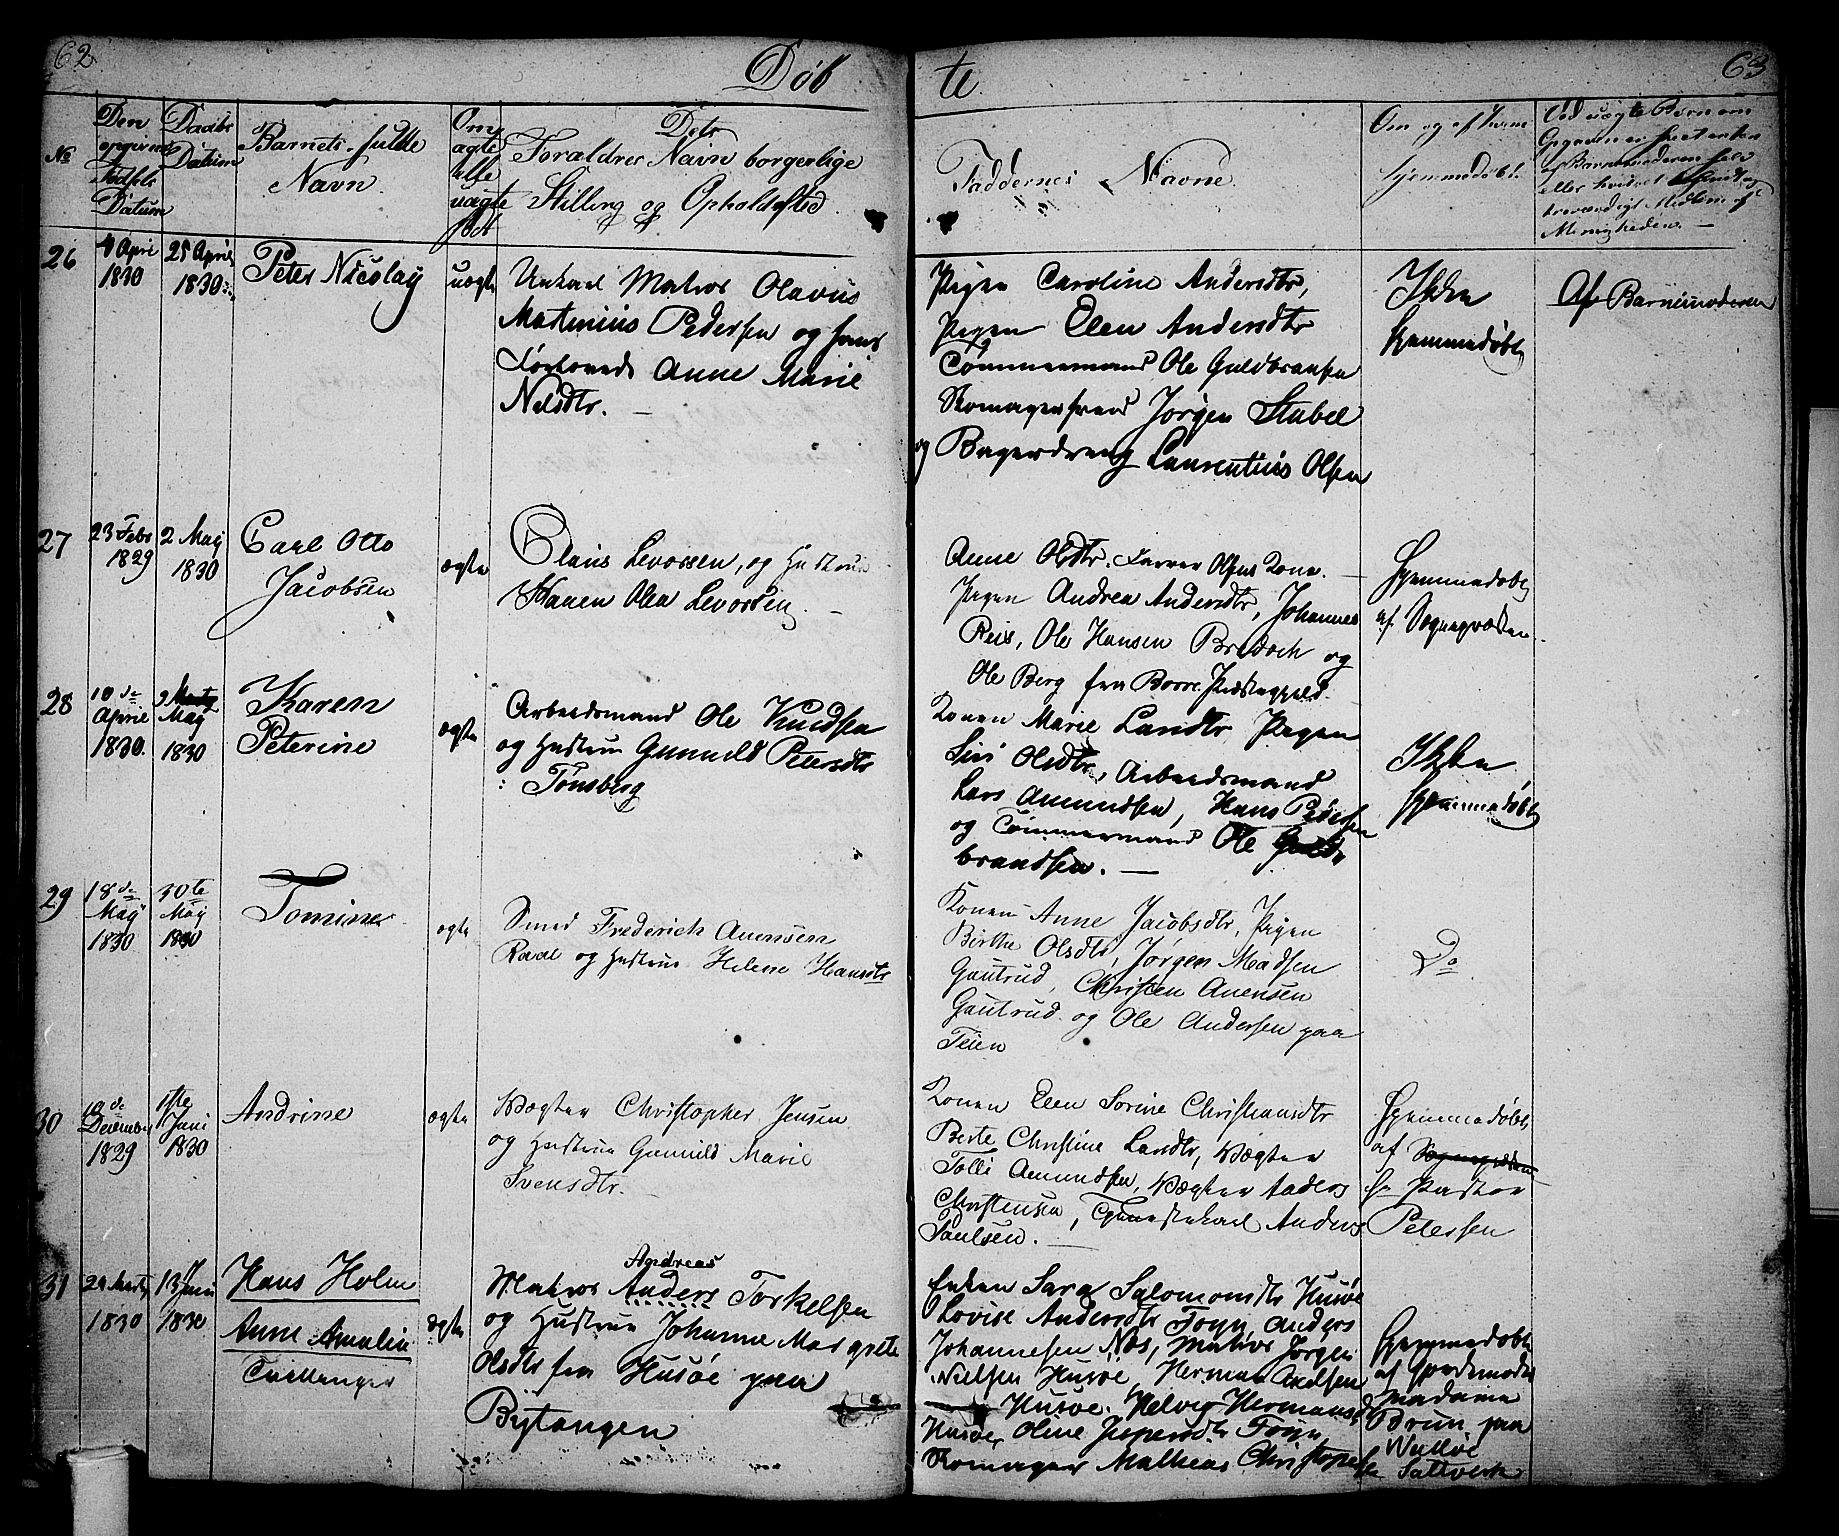 62
Døb
te
63
No
Den opgivne Fødsels Datum
Daabs Datum
Barnets fulde Navn.
Om ægte eller uægte født
Dets Forældres Navn borgerlige Stilling og Opholdssted.
Faddernes Navne.
Om og af hvem hjemmedøbt.
Ved uægte Børn om Opgaven er skeet enten af Barnemoderen selv eller hvilket troværdigt Medlem af Menigheden. —
26
4 April 1830
25 April 1830
Peter Nicolay
uægte
Unkarl Matros Olavus
Matinius Pedersen og hans
Forlovede Anne Marie
Nilsdtr. —
Pigen Caroline Andersdtr,
Pigen Elen Andersdtr
Tømmermand Ole Guldbransen
Skomagersvend Jørgen Stubel
og Bagerdreng Laurentius Olsen
Ikke
hjemmedøbt
Af Barnemoderen
27
23 Febr 1829
2 May 1830
Carl Otto
Jacobsen
ægte
Claus Levorsen, og Hustrue
Karen Olea Levorsen. —
Anne Olsdtr. Olsens Kone. —
Pigen Andrea Andersdtr, Johannes
Reis, Ole Hansen Bredoch og
Ole Berg fra Borre Præstegjeld.
Hjemmedøbt
af Sognepræsten.
28
10de April 1830.
9 May 1830
Karen
Peterine
ægte
Arbeidsmand Ole Knudsen
og Hustrue Gunnild Petersdtr
: Tønsberg
Konen Marie Larsdtr, Pigen
Siri Olsdtr, Arbeidsmand
Lars Amundsen, Hans Pedersen
og Tømmermand Ole Guld-
brandsen. —
Ikke
hjemmedøbt
29
18de May 1830
30te May 1830
Tomine
ægte
Smed Frederich Auensen
Raael og Hustrue Helene Hansdtr
Konen Anne Jacobsdtr, Pigen
Birthe Olsdtr, Jørgen Madsen
Gautrud, Christen Auensen
Gautrud og Ole Andersen paa
Teien
Do
30
18de December 1829
1ste Juni 1830
Andrine
ægte
Vægter Christopher Jensen
og Hustrue Gunnild Marie
Svensdtr. —
Konen Elen Sorine Christiansdtr
Berte Christine Larsdtr, Vægter
Tolle Amundsen, Vægter Anders
Christensen, Tjenestekarl Anders
Paulsen. —
Hjemmedøbt
af Sognepræsten
Hr Pastor
Petersen
31
29 Marts 1830
13 Juni 1830
Hans Holm
Anne Amalia
Tvillinger
ægte
Andreas
Matros Anders Torkelsen
og Hustrue Johanne Margrete
Olsdtr fra Husøe paa
Bytangen
Enken Sara Salomonsdtr Husøe
Lovise Andersdtr Føyn Anders
Johannesen Næs, Matros Jørgen
Nielsen Husøe, Herman Axelsen
— Husøe. Helvig Hermansd
Husøe, Oline Jespersdtr Føyn
Skomager Mathias Christophersen
Hjemmedøbt
af Jordemoder
Madame
Brun paa
Valløe
Saltverk